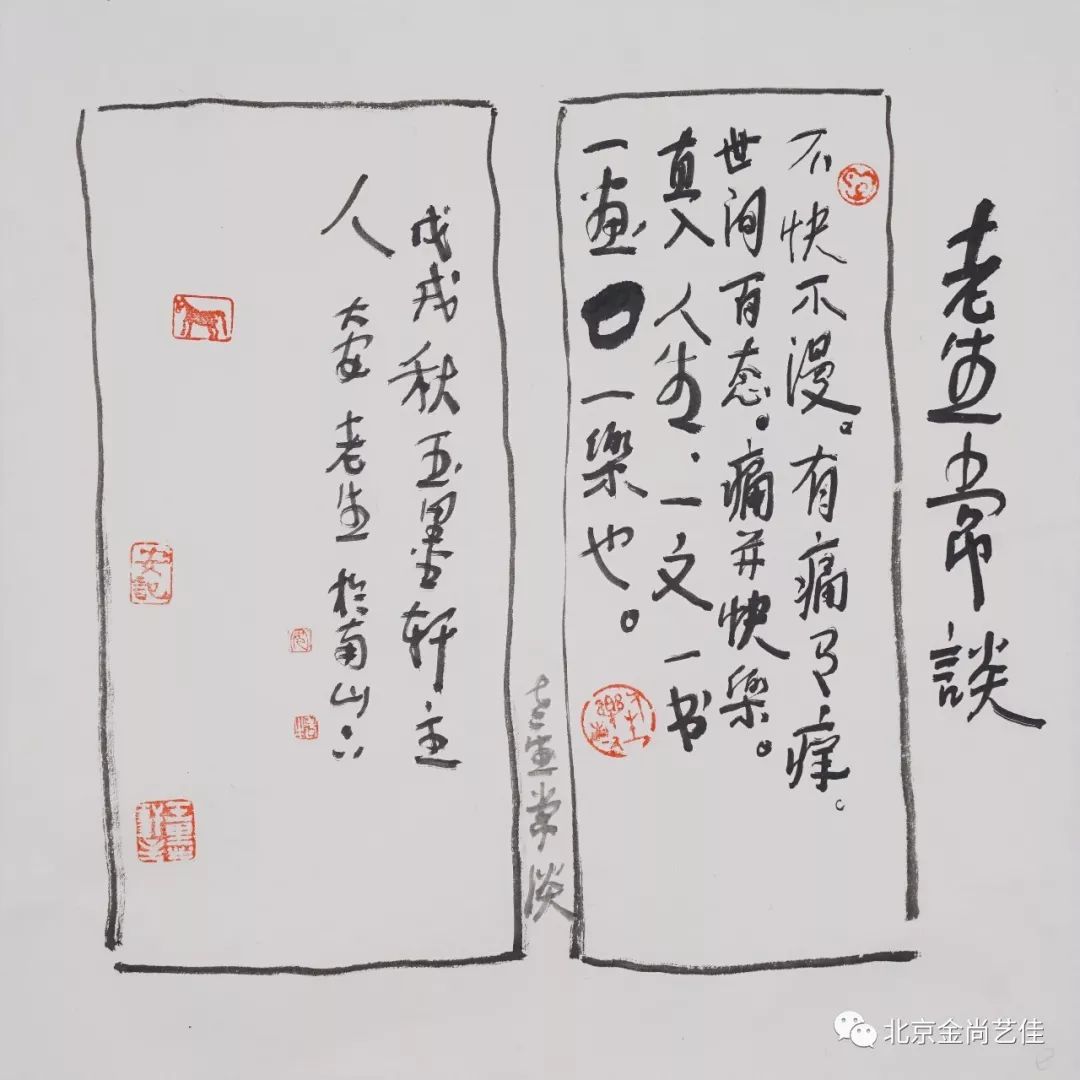 老生常談
不快不漫。有痛有痒。
世间百态。痛并快樂。
直入人生、一文一书
一畫 一樂也。
老生常谈
戊戌秋玉墨轩主
人 大安 老生 於南山下
安記
北京金尚艺佳